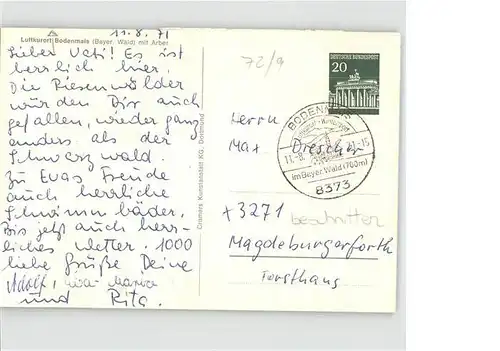 11.8.71
Luftkurort Bodenmais (Bayer. Wald) mit Arber
Lieber Vati! Es ist
herrlich hier.
Die Riesenwälder
würden Dir auch
gefallen, wieder ganz
anders als der
Schwarzwald.
Zu Evas Freude
auch herrliche
Schwimmbäder.
Bis jetzt auch herr-
liches Wetter. 1000
liebe Grüße Deine
Adolf,
und Rita.
Cramers Kunstanstalt KG, Dortmund
72/9
DEUTSCHE BUNDESPOST
20
BODENMAIS
11.-8.
im Bayer. Wald (700m)
8373
Herrn
Max Drescher
x3271
beschnitten
Magdeburgerforth
Forsthaus